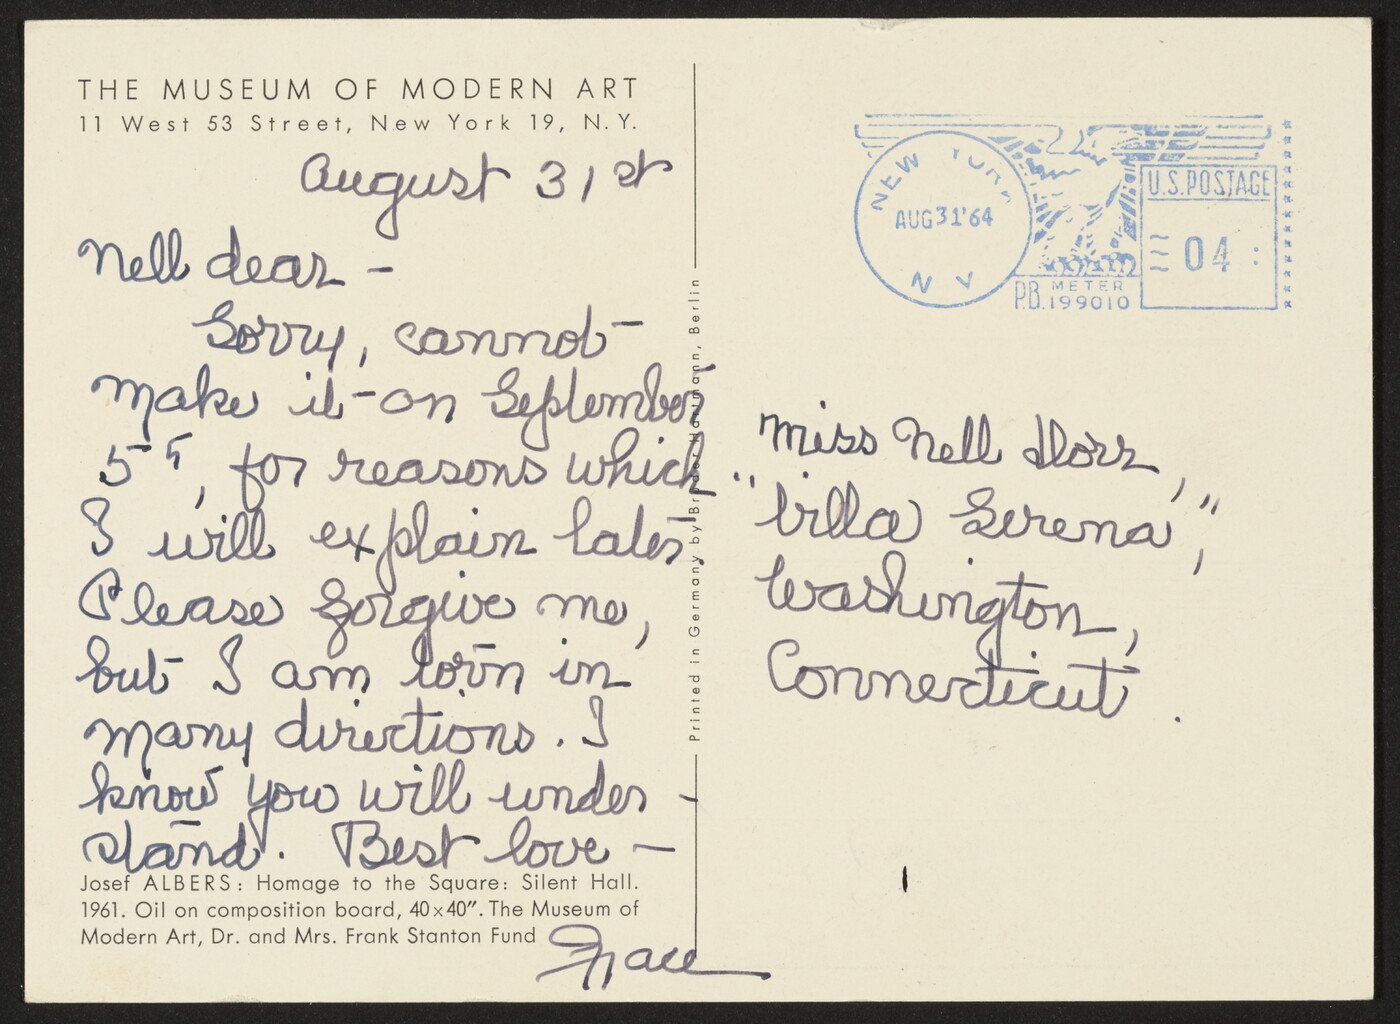 THE MUSEUM OF MODERN ART
11 West 53 Street, New York 19, N.Y.
August 31st
Nell dear –
Sorry, cannot
make it on September
5th, for reasons which
I will explain later.
Please forgive me,
but I am torn in
many directions. I
know you will under-
stand. Best love –
Grace
Josef ALBERS: Homage to the Square: Silent Hall.
1961. Oil on composition board, 40×40″. The Museum of
Modern Art, Dr. and Mrs. Frank Stanton Fund
Printed in Germany by Brüder Hartmann, Berlin
NEW YORK
AUG 31 '64
N Y
U.S. POSTAGE
04
P.B. METER
199010
Miss Nell Dorr,
"Villa Serena",
Washington,
Connecticut.